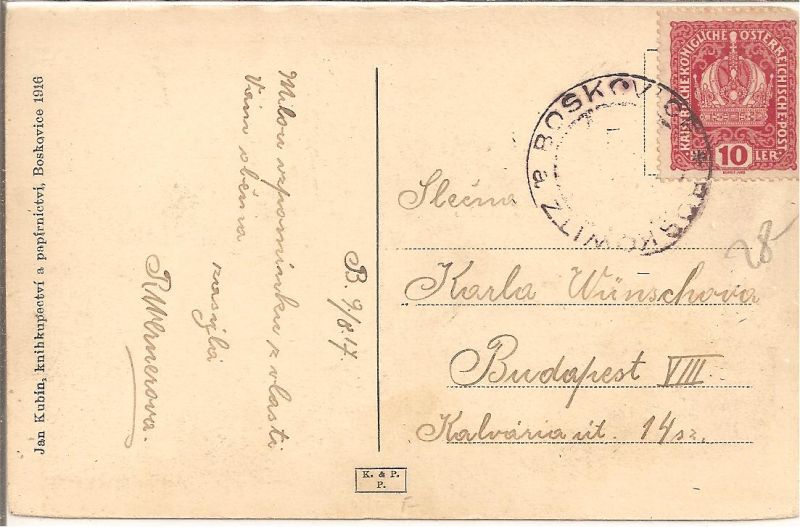 Jan Kubín, knihkupectví a papírnictví, Boskovice 1916
Milou vzpomínku z vlasti
Vám oběma
zasýlá
RWernerova.
B. 9/8.17.
K. & P.
P.
KAISERLICHE KÖNIGLICHE ÖSTERREICHISCHE POST
10 HELLER
BOSKOWITZ a BOSKOVICE *
28
Slečna
Karla Wünschova
Budapest VIII
Kalvária út. 14 sz.